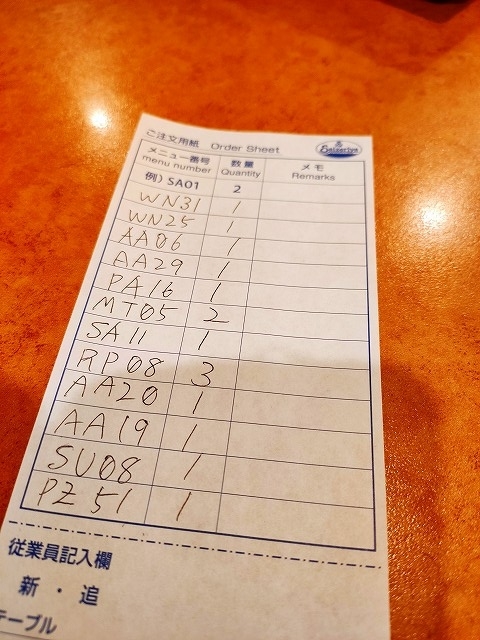 ご注文用紙 Order Sheet Saizeriya
メニュー番号 数量 メモ
menu number Quantity Remarks
例) SA01 2
WN31 1
WN25 1
AA06 1
AA29 1
PA16 1
MT05 2
SA11 1
RP08 3
AA20 1
AA19 1
SU08 1
PZ51 1
従業員記入欄
新・追
テーブル